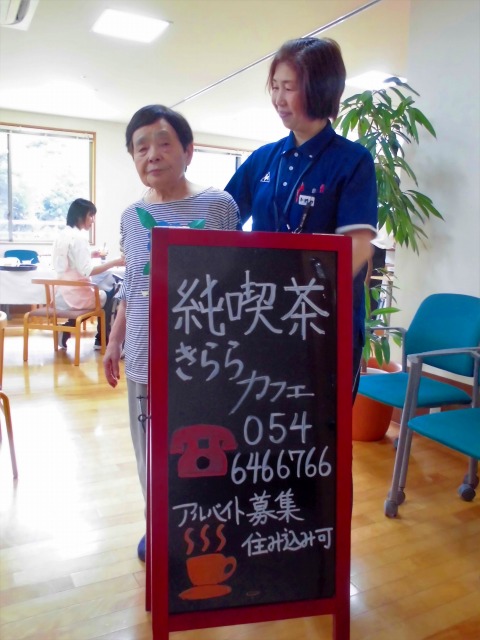 純喫茶
きらら
カフェ
054
6466766
アルバイト募集
住み込み可